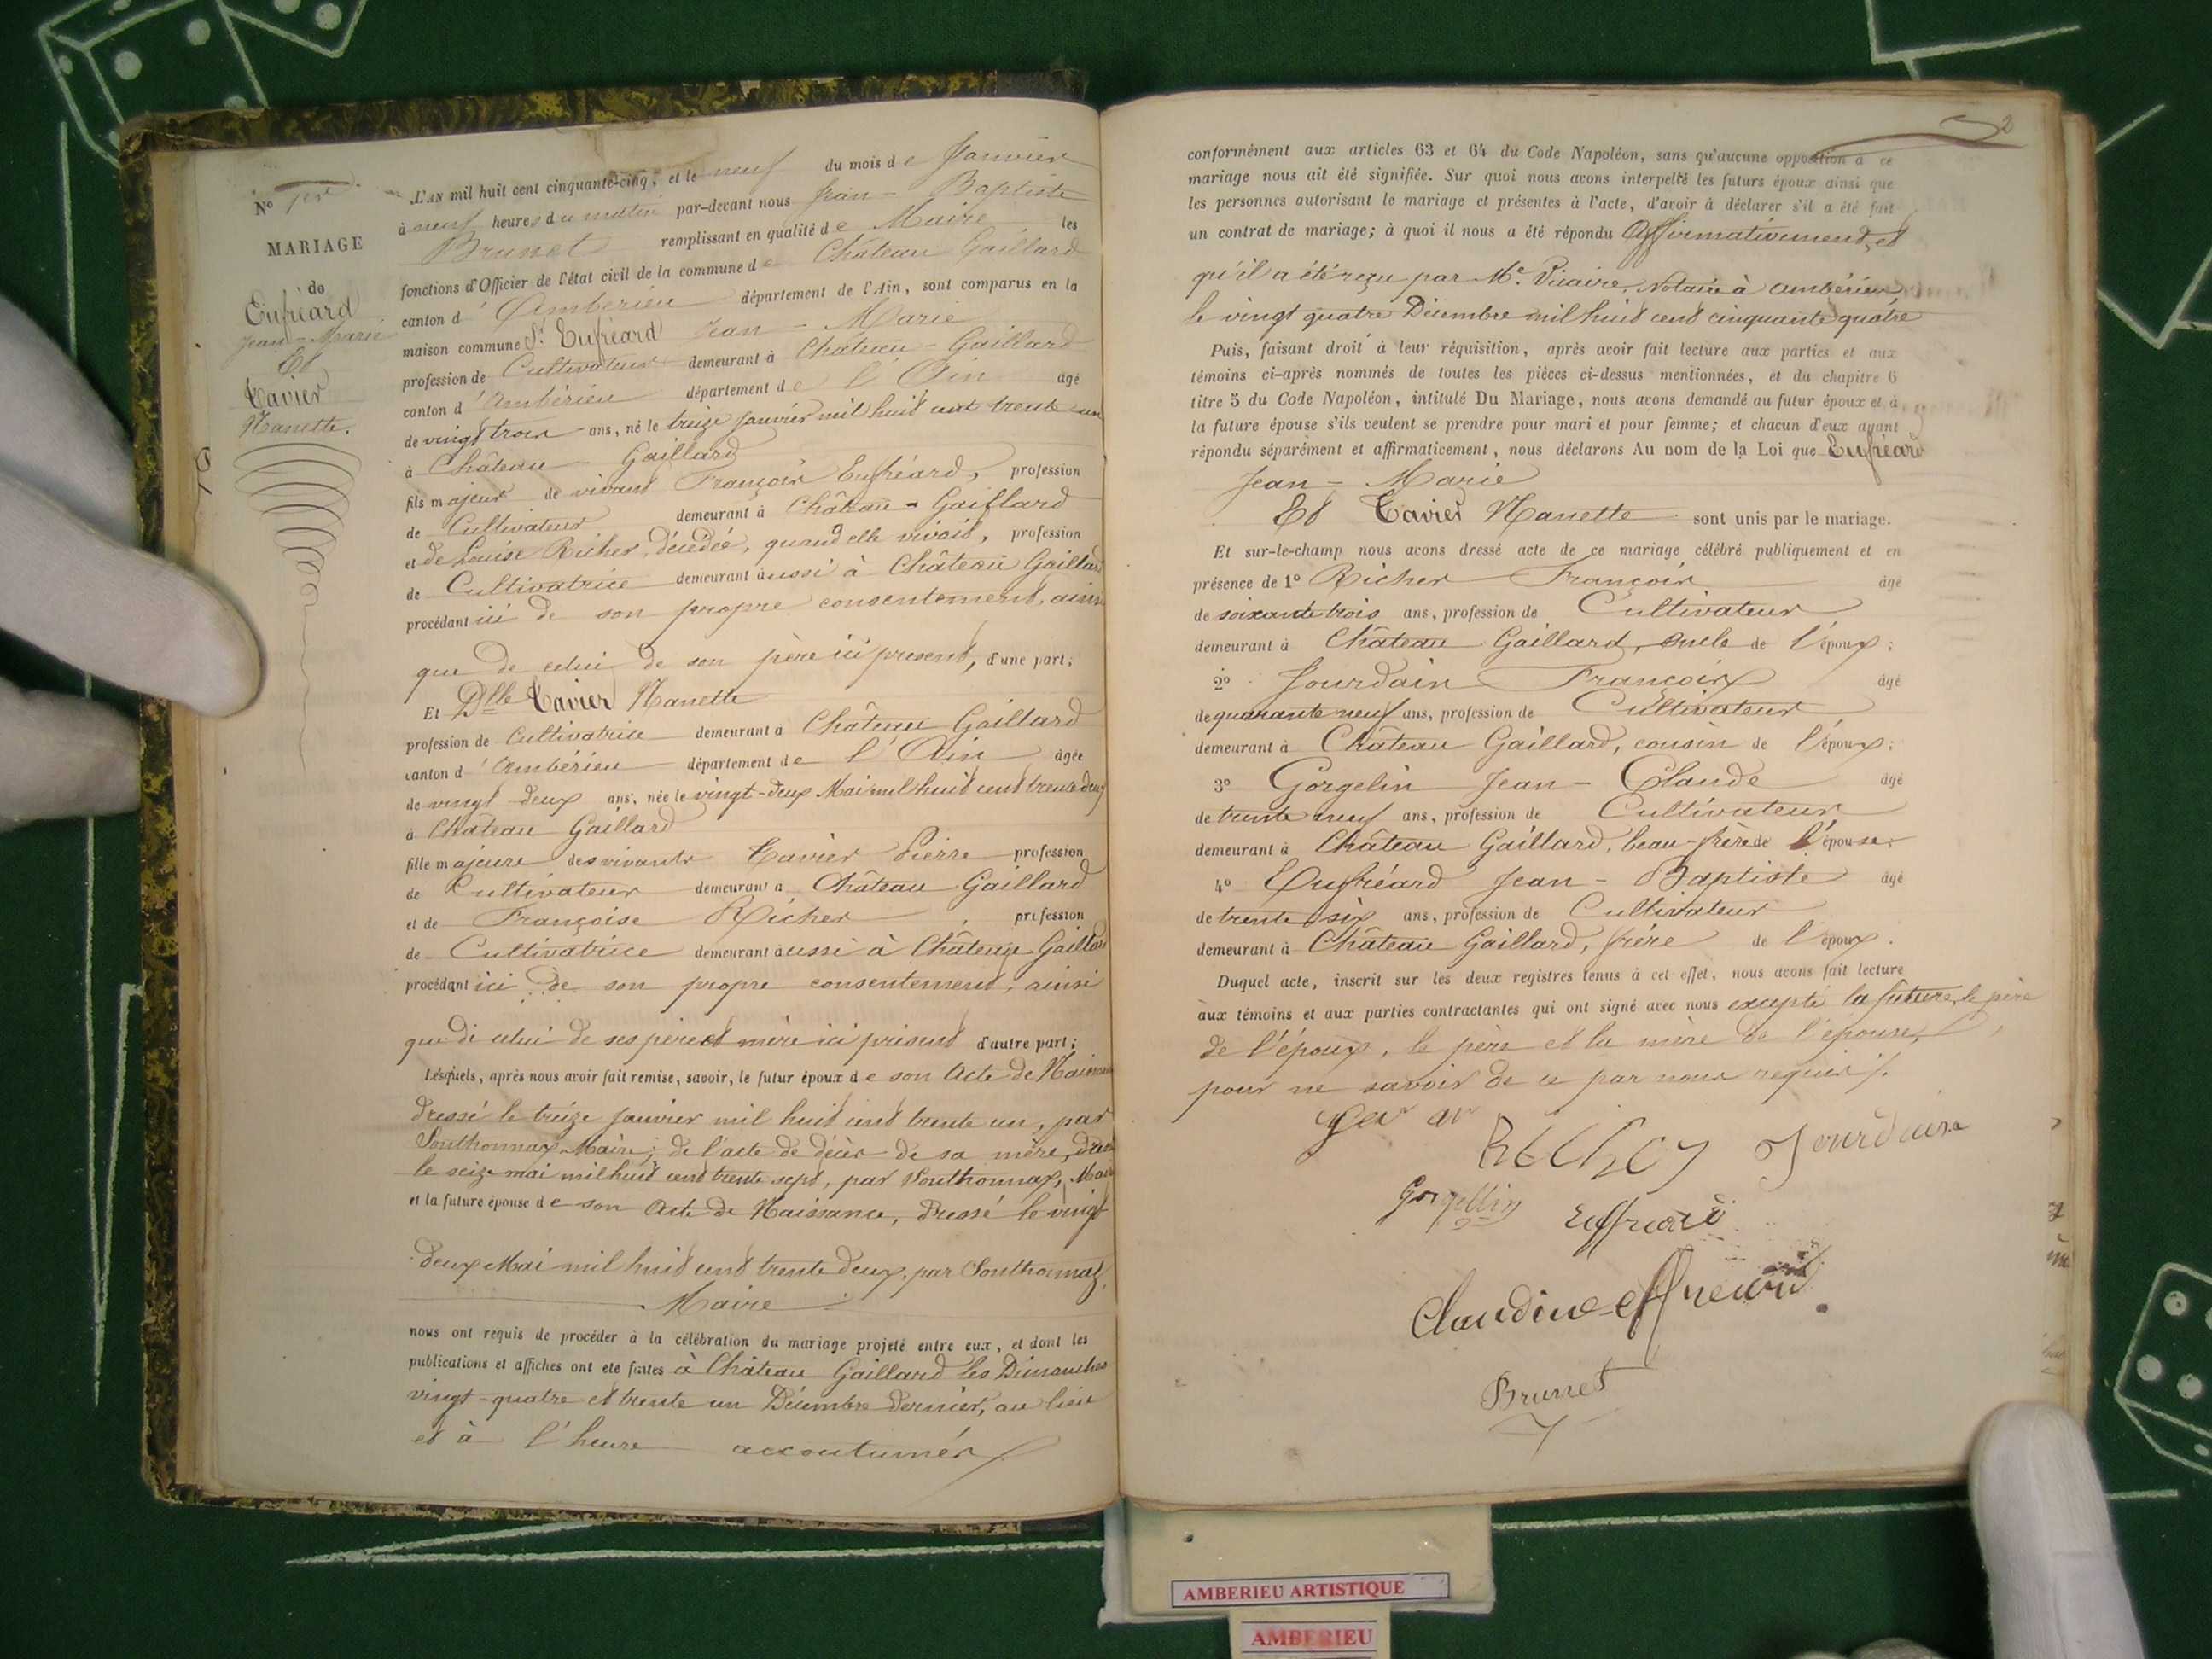 N° 1er
MARIAGE
de
Eufréard
Jean-Marie
Et
Tavier
Nanette.
L'AN mil huit cent cinquante-cinq, et le neuf du mois de Janvier
à neuf heures du matin par-devant nous Jean-Baptiste
Brunet remplissant en qualité de Maire les
fonctions d'Officier de l'état civil de la commune de Château Gaillard
canton d'Ambérieu département de l'Ain, sont comparus en la
maison commune Sr. Eufréard Jean-Marie
profession de Cultivateur demeurant à Château-Gaillard
canton d'Ambérieu département de l'Ain âgé
de vingt trois ans, né le treize Janvier mil huit cent trente un
à Château Gaillard
fils majeur de vivant François Eufréard, profession
de Cultivateur demeurant à Château-Gaillard
et de Louise Richer, décédée, quand elle vivait, profession
de Cultivatrice demeurant aussi à Château Gaillard
procédant ici de son propre consentement, ainsi
que de celui de son père ici présent, d'une part;
Et Dlle Tavier Nanette
profession de Cultivatrice demeurant à Château Gaillard
canton d'Ambérieu département de l'Ain âgée
de vingt deux ans, née le vingt-deux Mai mil huit cent trente deux
à Château Gaillard
fille majeure des vivants Tavier Pierre profession
de Cultivateur demeurant à Château Gaillard
et de Françoise Richer, profession
de Cultivatrice demeurant aussi à Château Gaillard
procédant ici de son propre consentement, ainsi
que de celui de ses père et mère ici présent d'autre part;
Lesquels, après nous avoir fait remise, savoir, le futur époux de son Acte de Naissance
dressé le treize Janvier mil huit cent trente un, par
Southonnax Maire; de l'acte de décès de sa mère, dressé
le seize mai mil huit cent trente sept, par Southonnax, Maire
et la future épouse de son Acte de Naissance, dressé le vingt
deux Mai mil huit cent trente deux, par Southonnax,
Maire
nous ont requis de procéder à la célébration du mariage projeté entre eux, et dont les
publications et affiches ont été faites à Château Gaillard les Dimanches
vingt-quatre et trente un Décembre dernier, au lieu
et à l'heure accoutumés
2
conformément aux articles 63 et 64 du Code Napoléon, sans qu'aucune opposition à ce
mariage nous ait été signifiée. Sur quoi nous avons interpellé les futurs époux ainsi que
les personnes autorisant le mariage et présentes à l'acte, d'avoir à déclarer s'il a été fait
un contrat de mariage; à quoi il nous a été répondu Affirmativement, et
qu'il a été reçu par Me. Vicaire, Notaire à Ambérieu
le vingt quatre Décembre mil huit cent cinquante quatre
Puis, faisant droit à leur réquisition, après avoir fait lecture aux parties et aux
témoins ci-après nommés de toutes les pièces ci-dessus mentionnées, et du chapitre 6
titre 5 du Code Napoléon, intitulé Du Mariage, nous avons demandé au futur époux et à
la future épouse s'ils veulent se prendre pour mari et pour femme; et chacun d'eux ayant
répondu séparément et affirmativement, nous déclarons Au nom de la Loi que Eufréard
Jean-Marie
Et Tavier Nanette sont unis par le mariage.
Et sur-le-champ nous avons dressé acte de ce mariage célébré publiquement et en
présence de 1° Richer François âgé
de soixante trois ans, profession de Cultivateur
demeurant à Château Gaillard, oncle de l'époux;
2° Jourdain François âgé
de quarante neuf ans, profession de Cultivateur
demeurant à Château Gaillard, cousin de l'époux;
3° Gorgelin Jean-Claude âgé
de trente neuf ans, profession de Cultivateur,
demeurant à Château Gaillard, beau-frère de l'épouse
4° Eufréard Jean-Baptiste âgé
de trente six ans, profession de Cultivateur
demeurant à Château Gaillard, frère de l'époux.
Duquel acte, inscrit sur les deux registres tenus à cet effet, nous avons fait lecture
aux témoins et aux parties contractantes qui ont signé avec nous excepté la future, le père
de l'époux, le père et la mère de l'épouse,
pour ne savoir de ce par nous requis.
Richer Jourdain
Gorgellin Euffreard
Claudine effreard
Brunet
AMBERIEU ARTISTIQUE
AMBERIEU